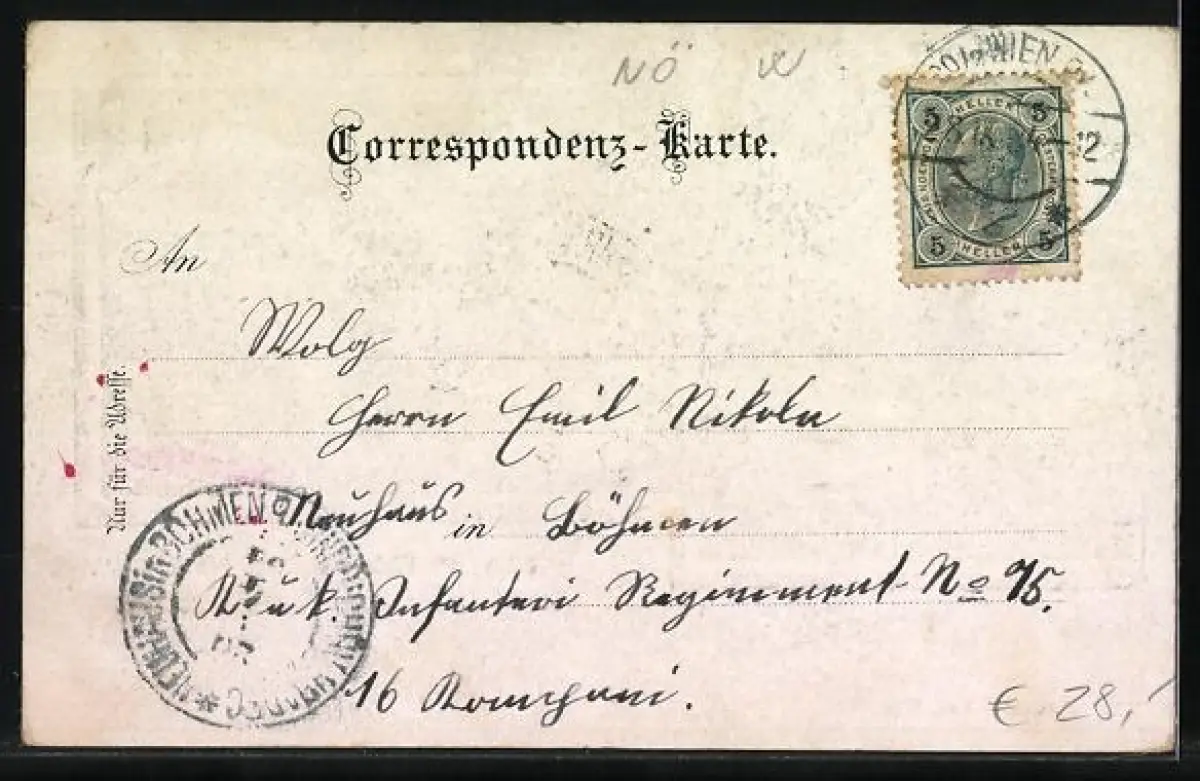 NÖ W
Correspondenz-Karte.
WIEN
12
5 HELLER 5
5 HELLER 5
An
Wolg
Herrn Emil Nikola
Neuhaus in Böhmen
K. u. k. Infanteri Regimment No 75.
16 Kompani.
Nur für die Adresse.
NEUHAUS in BÖHMEN
€ 28,-